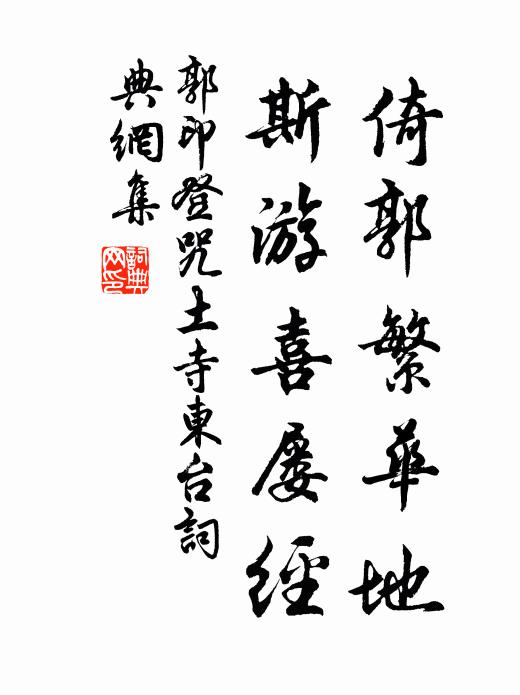 倚郭繁華地
斯游喜屢經
郭印登咒土寺東台詞
典網集
詞典
网印